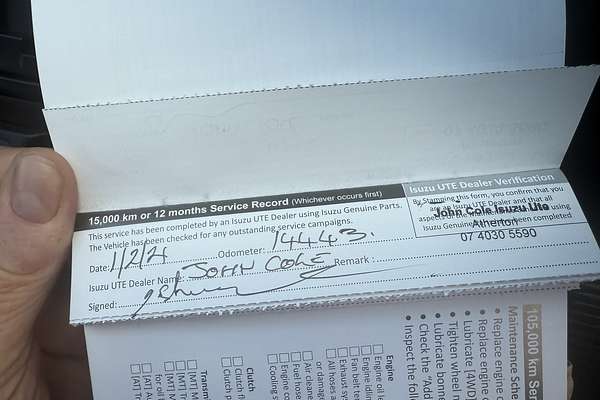 15,000 km or 12 months Service Record (Whichever occurs first)
This service has been completed by an Isuzu UTE Dealer using Isuzu Genuine Parts.
The Vehicle has been checked for any outstanding service campaigns.
Date: 1/2/21 Odometer: 14443.
Isuzu UTE Dealer Name: JOHN COLE Remark :
Signed:
Isuzu UTE Dealer Verification
By Stamping this form, you confirm that you
are an Isuzu UTE Dealer and that all
John Cole Isuzu Ute
Atherton
07 4030 5590
105,000 km Ser
Maintenance Sche
• Replace engine
• Replace engine
• Lubricate [4WD]
• Tighten wheel
• Lubricate bonne
• Check the "Add
• Inspect the follo
Engine
Engine oil le
Engine idlin
Fan belt te
Exhaust sys
All hoses a
or damag
Air cleane
Fuel hose
Engine co
Cooling s
Clutch
Clutch fl
Clutch p
Transm
[MT] M
[MT] Tr
[AT] AU
for oil l
[AT]